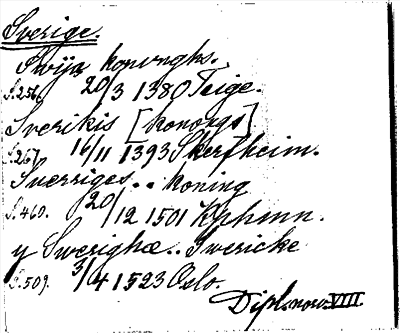 Sverige.
Swya konunghs.
S.256. 20/3 1380 Teige.
Sverikis [konongs]
S.267. 16/11 1393 Skerfheim.
Sueriges.. koning
S.460. 20/12 1501 Kphmn.
y Swerighæ.. Swericke
S.509. 3/4 1523 Oslo.
Dipl.norv.VIII.